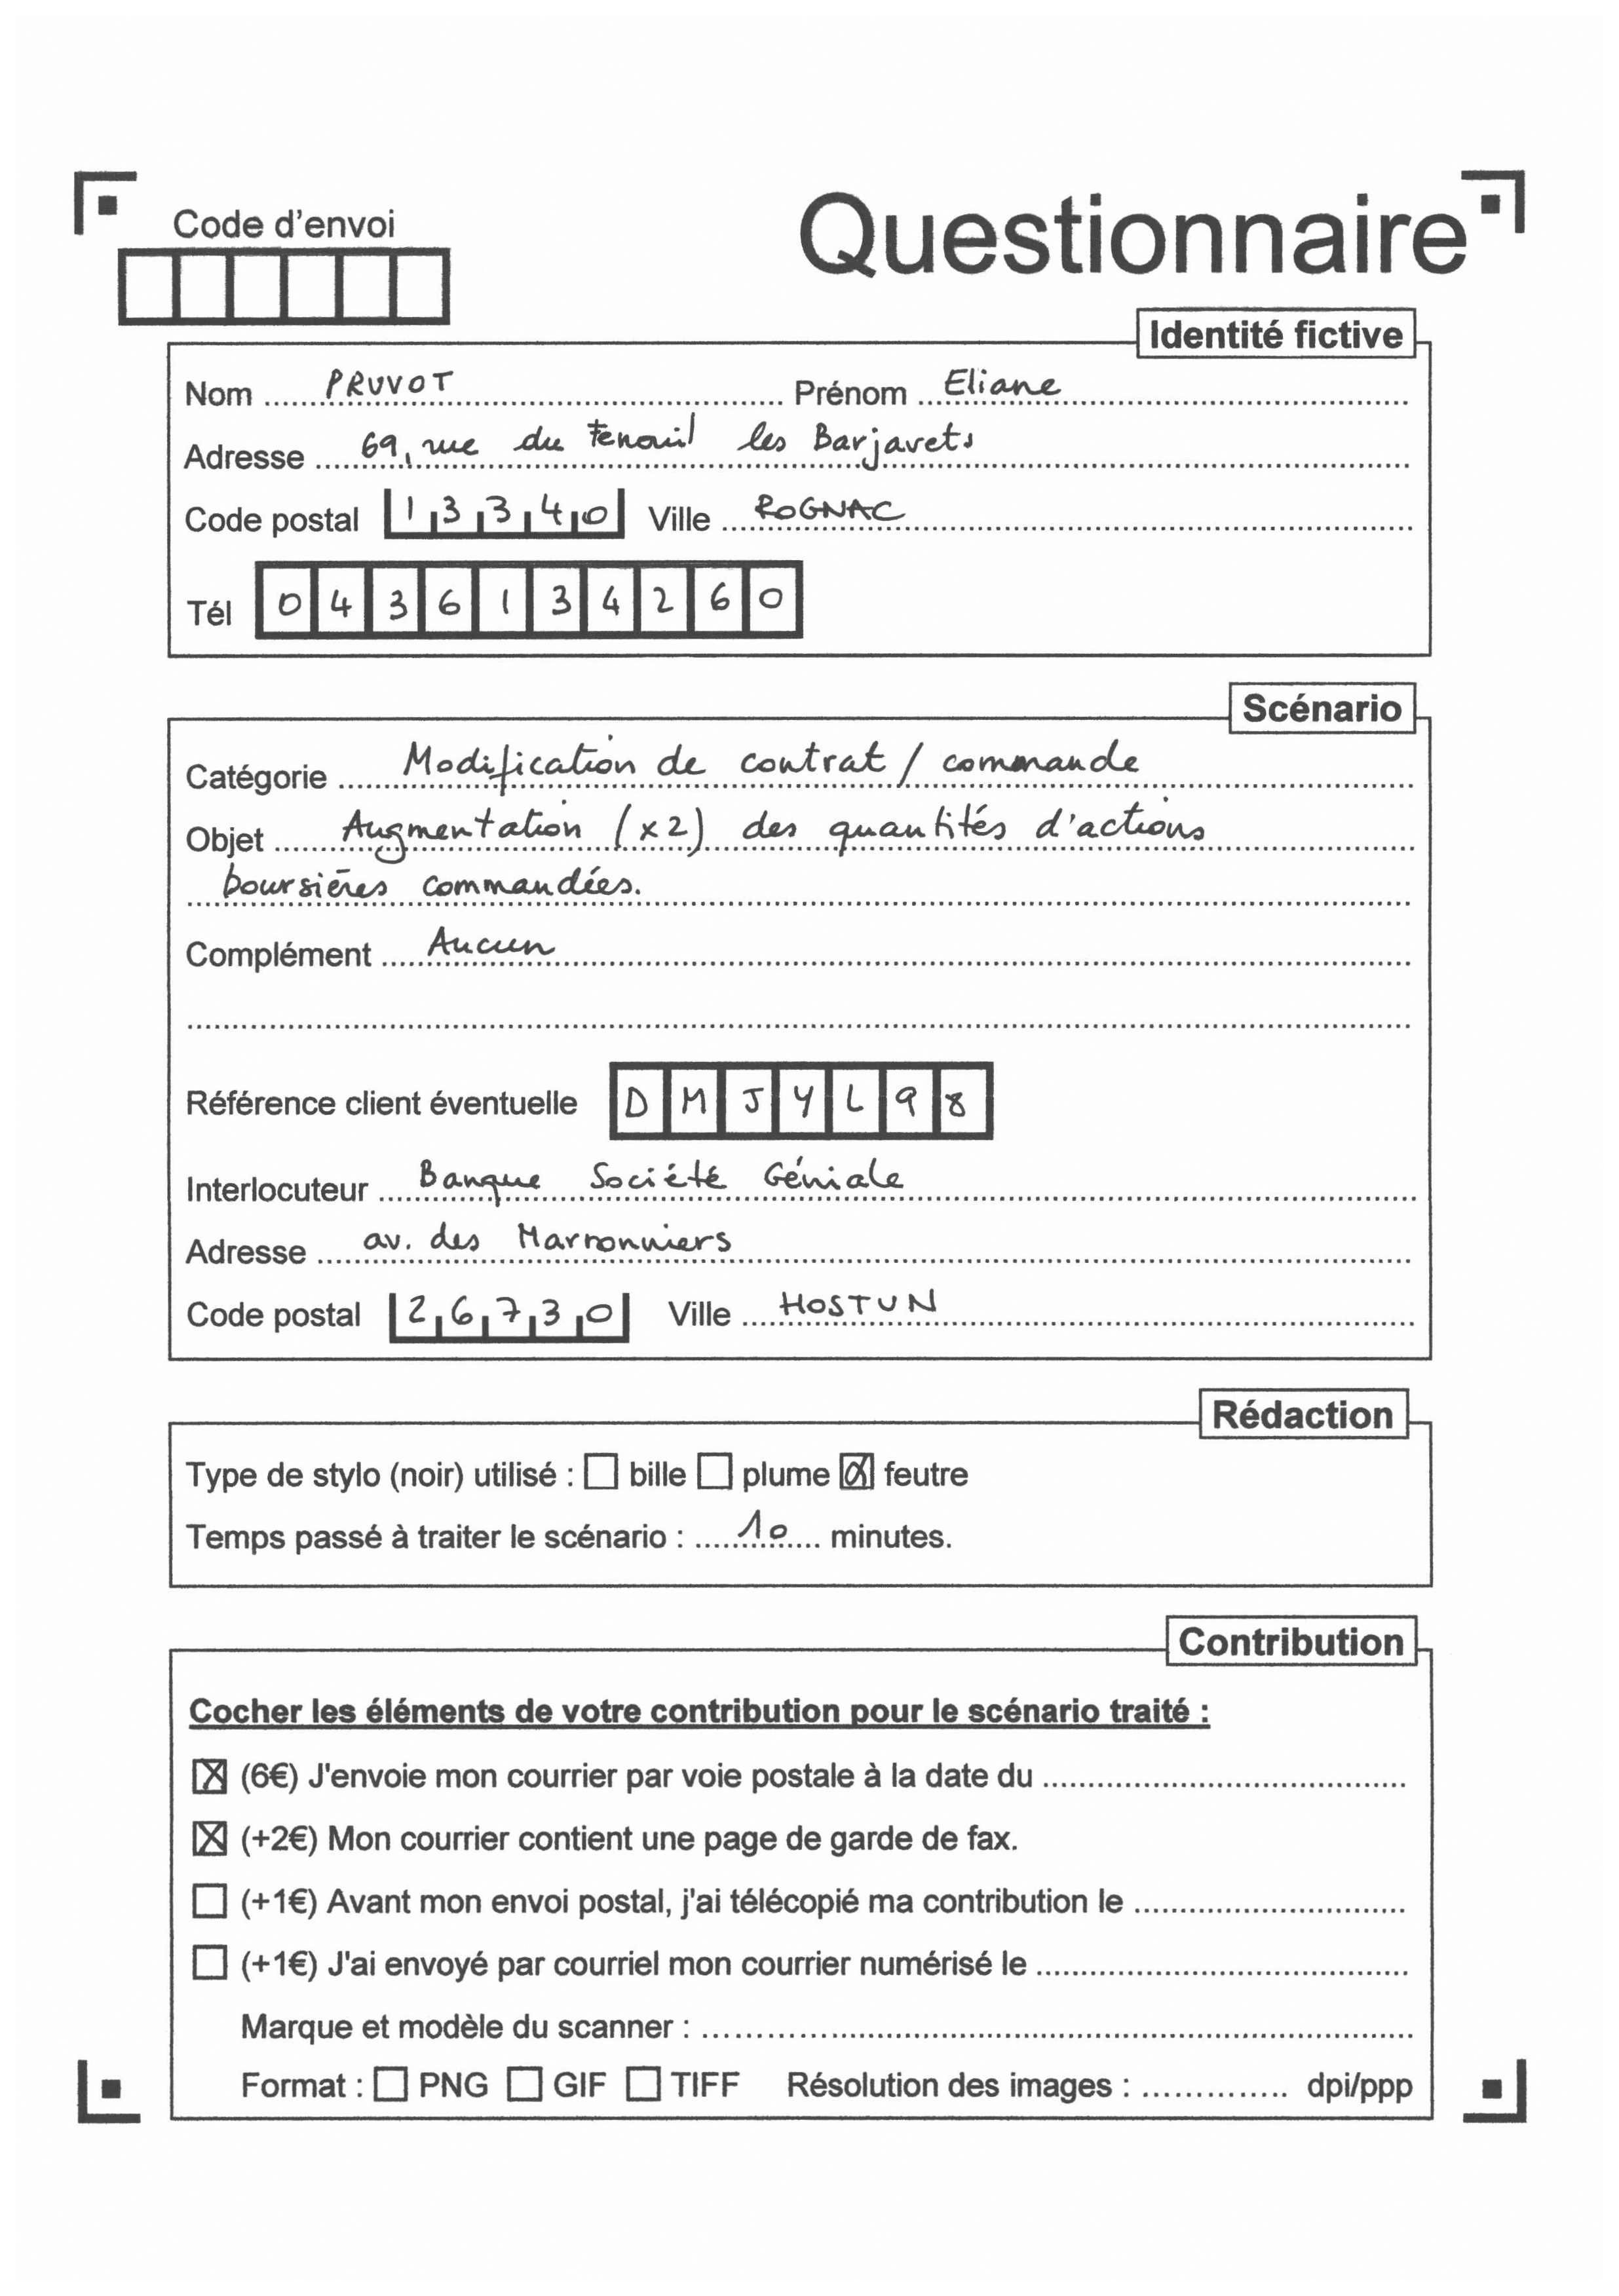 Code d'envoi
Questionnaire
Identité fictive
Nom ...... PRUVOT ...... Prénom ... Eliane ......
Adresse ...... 69, rue du Fenouil les Barjavets ......
Code postal 13340 Ville ...... ROGNAC ......
Tél 0436134260
Scénario
Catégorie ...... Modification de contrat / commande ......
Objet ...... Augmentation (x2) des quantités d'actions
boursières commandées. ......
Complément ...... Aucun ......
Référence client éventuelle DMJYL98
Interlocuteur ...... Banque Société Géniale ......
Adresse ...... av. des Marronniers ......
Code postal 26730 Ville ...... HOSTUN ......
Rédaction
Type de stylo (noir) utilisé : ☐ bille ☐ plume ☒ feutre
Temps passé à traiter le scénario : ...... 10 ...... minutes.
Contribution
Cocher les éléments de votre contribution pour le scénario traité :
☒ (6€) J'envoie mon courrier par voie postale à la date du ......
☒ (+2€) Mon courrier contient une page de garde de fax.
☐ (+1€) Avant mon envoi postal, j'ai télécopié ma contribution le ......
☐ (+1€) J'ai envoyé par courriel mon courrier numérisé le ......
Marque et modèle du scanner : ......
Format : ☐ PNG ☐ GIF ☐ TIFF Résolution des images : ...... dpi/ppp